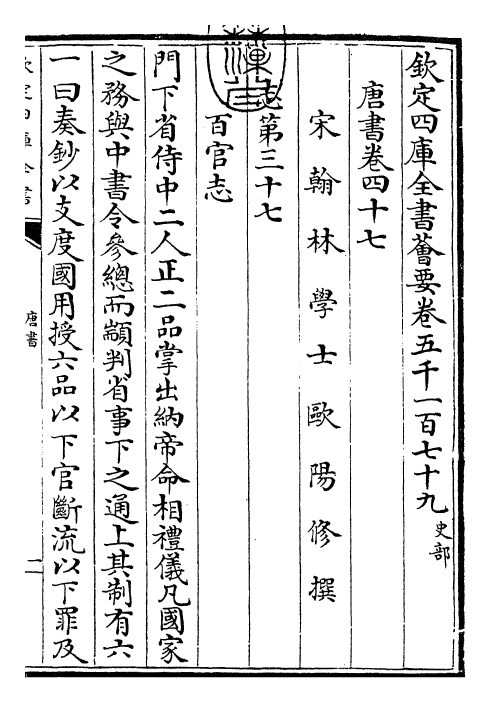 欽定四庫全書薈要卷五千一百七十九 史部
唐書卷四十七
宋翰林學士歐陽修撰
志第三十七
百官志
門下省侍中二人正二品掌出納帝命相禮儀凡國家
之務與中書令參總而顓判省事下之通上其制有六
一曰奏鈔以支度國用授六品以下官斷流以下罪及
唐書